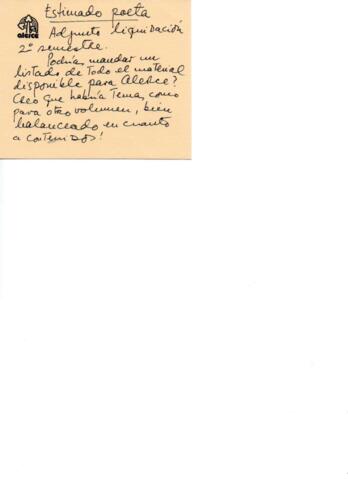 alerce
Estimado poeta
Adjunto liquidación
2º semestre.
Podrías mandar un
listado de todo el material
disponible para Alerce?
Creo que habría temas como
para otro volumen, bien
balanceado en cuanto
a contenidos!